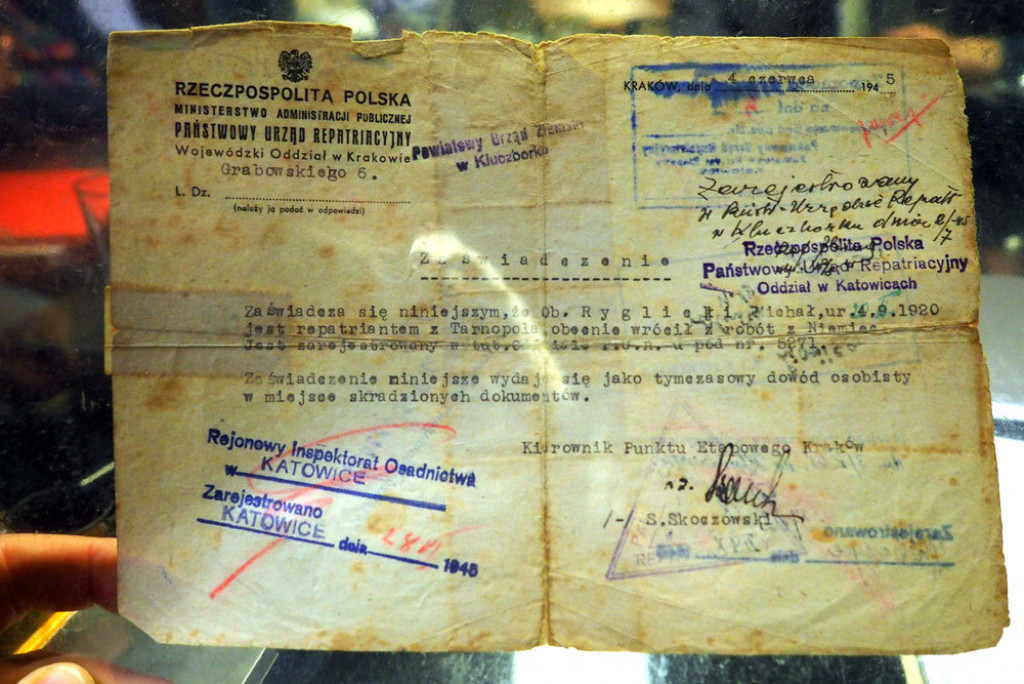 RZECZPOSPOLITA POLSKA
MINISTERSTWO ADMINISTRACJI PUBLICZNEJ
PAŃSTWOWY URZĄD REPATRIACYJNY
Wojewódzki Oddział w Krakowie
Grabowskiego 6.
L. Dz.
(należy ją podać w odpowiedzi)
Powiatowy Urząd Ziemski
w Kluczborku
KRAKÓW, dnia 4 czerwca 194 5
Zarejestrowany
w Państ. Urzędzie Repatr
w Kluczborku dnia
Rzeczpospolita Polska
Państwowy Urząd Repatriacyjny
Oddział w Katowicach
Zaświadczenie
Zaświadcza się niniejszym, że Ob. Ryglicki Michał, ur. 4.9.1920
jest repatriantem z Tarnopola, obecnie wrócił z robót z Niemiec.
Jest zarejestrowany w tut. Oddziale P.U.R. u pod nr. 5271.
Zaświadczenie niniejsze wydaje się jako tymczasowy dowód osobisty
w miejsce skradzionych dokumentów.
Kierownik Punktu Etapowego Kraków
/-/ S.Skoczowski
Rejonowy Inspektorat Osadnictwa
w KATOWICE
Zarejestrowano
KATOWICE dnia 28 VI 1945
Zarejestrowano
dnia